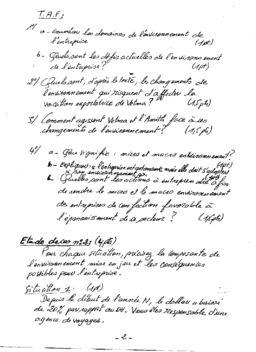 T.A.F :
1°/ a- énumérer les domaines de l'environnement de
l'entreprise (1pt)
b- Quels sont les défis actuelles de l'environnement
de l'entreprise ? (1pt)
2°/ Quels sont, d'après le texte, les changements de
l'environnement qui risquent d'affecter la
vocation exportatrice de Velma ? (1,5pts)
3°/ Comment agissent Velma et l'Amith face à ces
changements de l'environnement ? (1,5pts)
4°/ a- Que signifie : micro et macro environnement ?
b- expliquer : « l'entreprise est autonome mais elle doit s'adapter
à son environnement »
c- Quelles sont les actions à entreprendre afin
de rendre le micro et le macro environnement
des entreprises de confection favorable à
l'épanouissement de ce secteur ? (1,5pts)
Etude de cas n°2 : (4pts)
Pour chaque situation, précisez la composante de
l'environnement mise en jeu et les conséquences
possibles pour l'entreprise.
Situation 1 : (1pt)
Depuis le début de l'année N, le dollar a baissé
de 20% par rapport au DH. Vous êtes responsable d'une
agence de voyages.
- 2 -